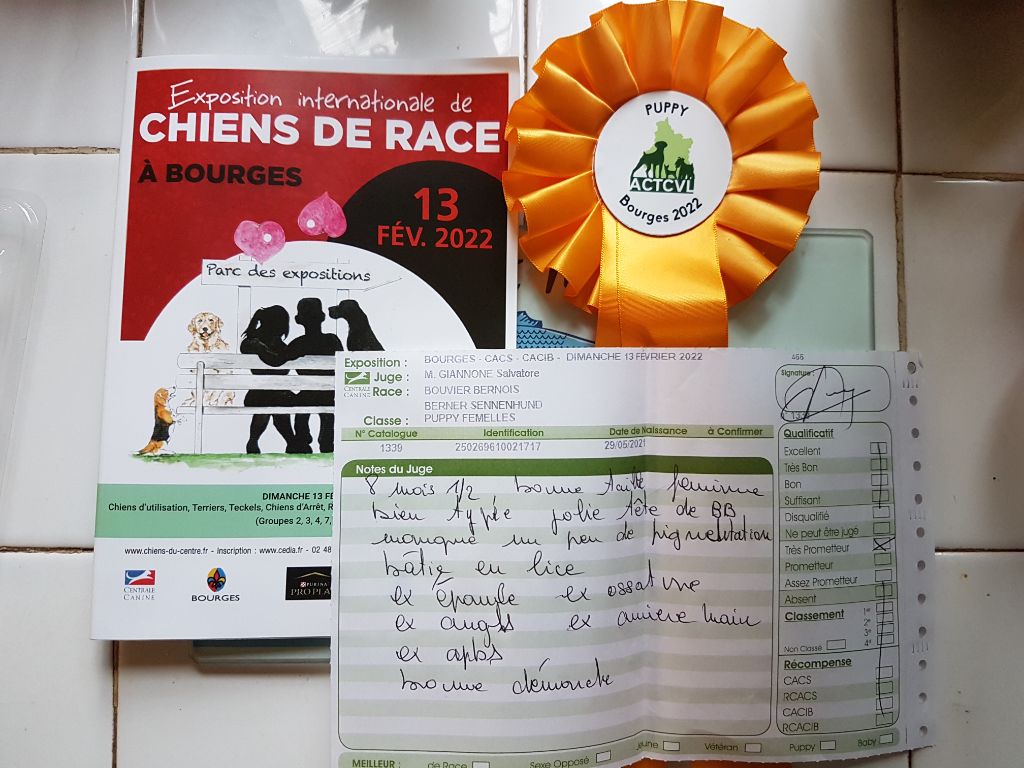 Exposition internationale de
CHIENS DE RACE
À BOURGES
13
FÉV. 2022
Parc des expositions
DIMANCHE 13 FÉ
Chiens d'utilisation, Terriers, Teckels, Chiens d'Arrêt, R
(Groupes 2, 3, 4, 7,
www.chiens-du-centre.fr - Inscription : www.cedia.fr - 02 48
CENTRALE
CANINE
BOURGES
PURINA
PRO PLA
PUPPY
ACTCVL
Bourges 2022
Exposition : BOURGES - CACS - CACIB - DIMANCHE 13 FÉVRIER 2022
466
CENTRALE
CANINE
Juge : M. GIANNONE Salvatore
Race : BOUVIER BERNOIS
BERNER SENNENHUND
Classe : PUPPY FEMELLES
Signature
N° Catalogue Identification Date de Naissance à Confirmer
1339 250269610021717 29/05/2021
Notes du Juge
8 mois 1/2 bonne taille féminine
bien typée jolie tête de BB
manque un peu de pigmentation
bâtie en lice
ex épaule ex ossature
ex angls ex arrière main
ex aplbs
bonne démarche
Qualificatif
Excellent
Très Bon
Bon
Suffisant
Disqualifié
Ne peut être jugé
Très Prometteur
Prometteur
Assez Prometteur
Absent
Classement 1er
2e
3e
4e
Non Classé
Récompense
CACS
RCACS
CACIB
RCACIB
MEILLEUR : de Race Sexe Opposé Jeune Vétéran Puppy Baby